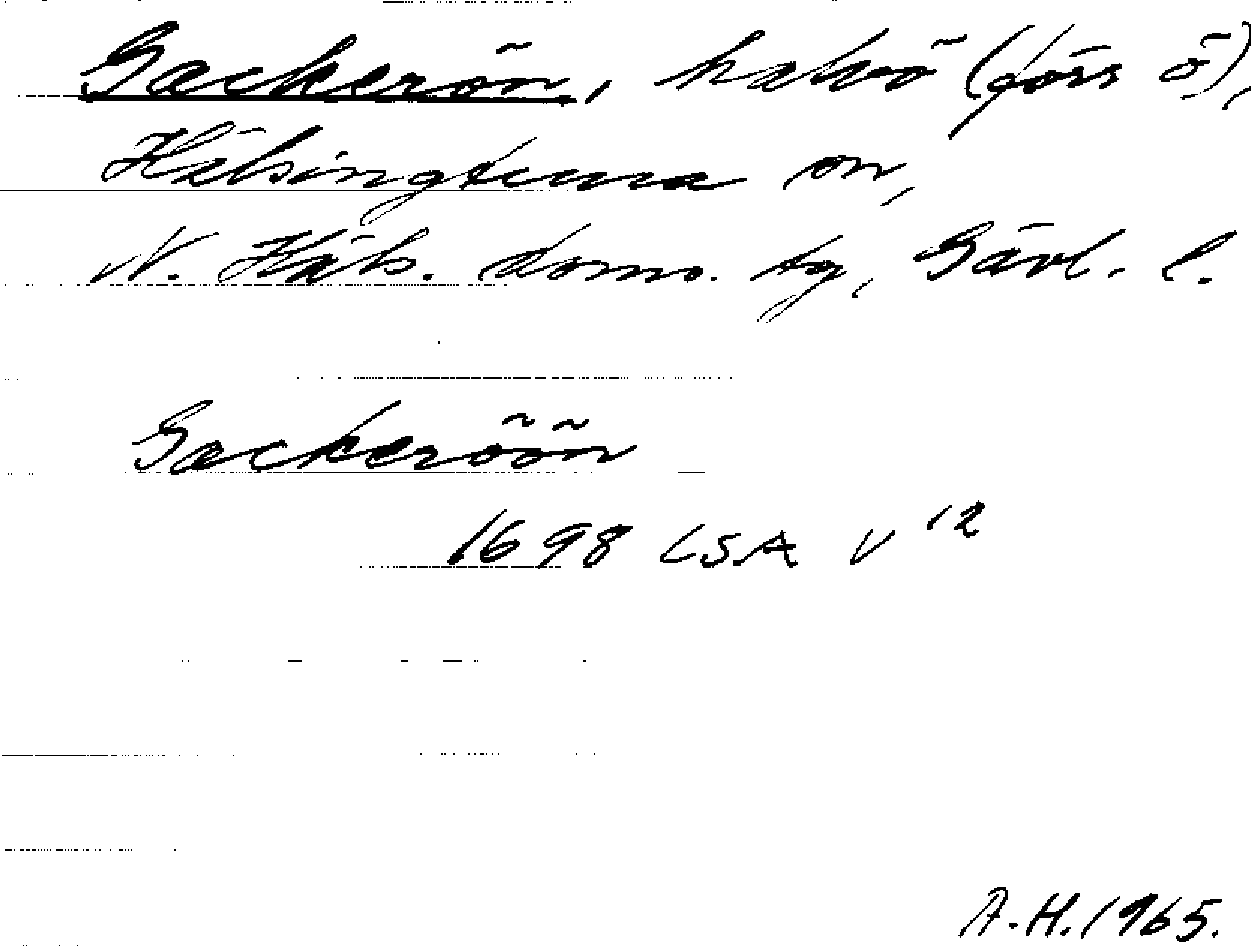 Gackerön, halvö (förr ö),
Hälsingtuna sn,
N. Häls. doms. tg, Gävl. l.
Gackeröön
1698 LSA V 12
A.H. 1965.